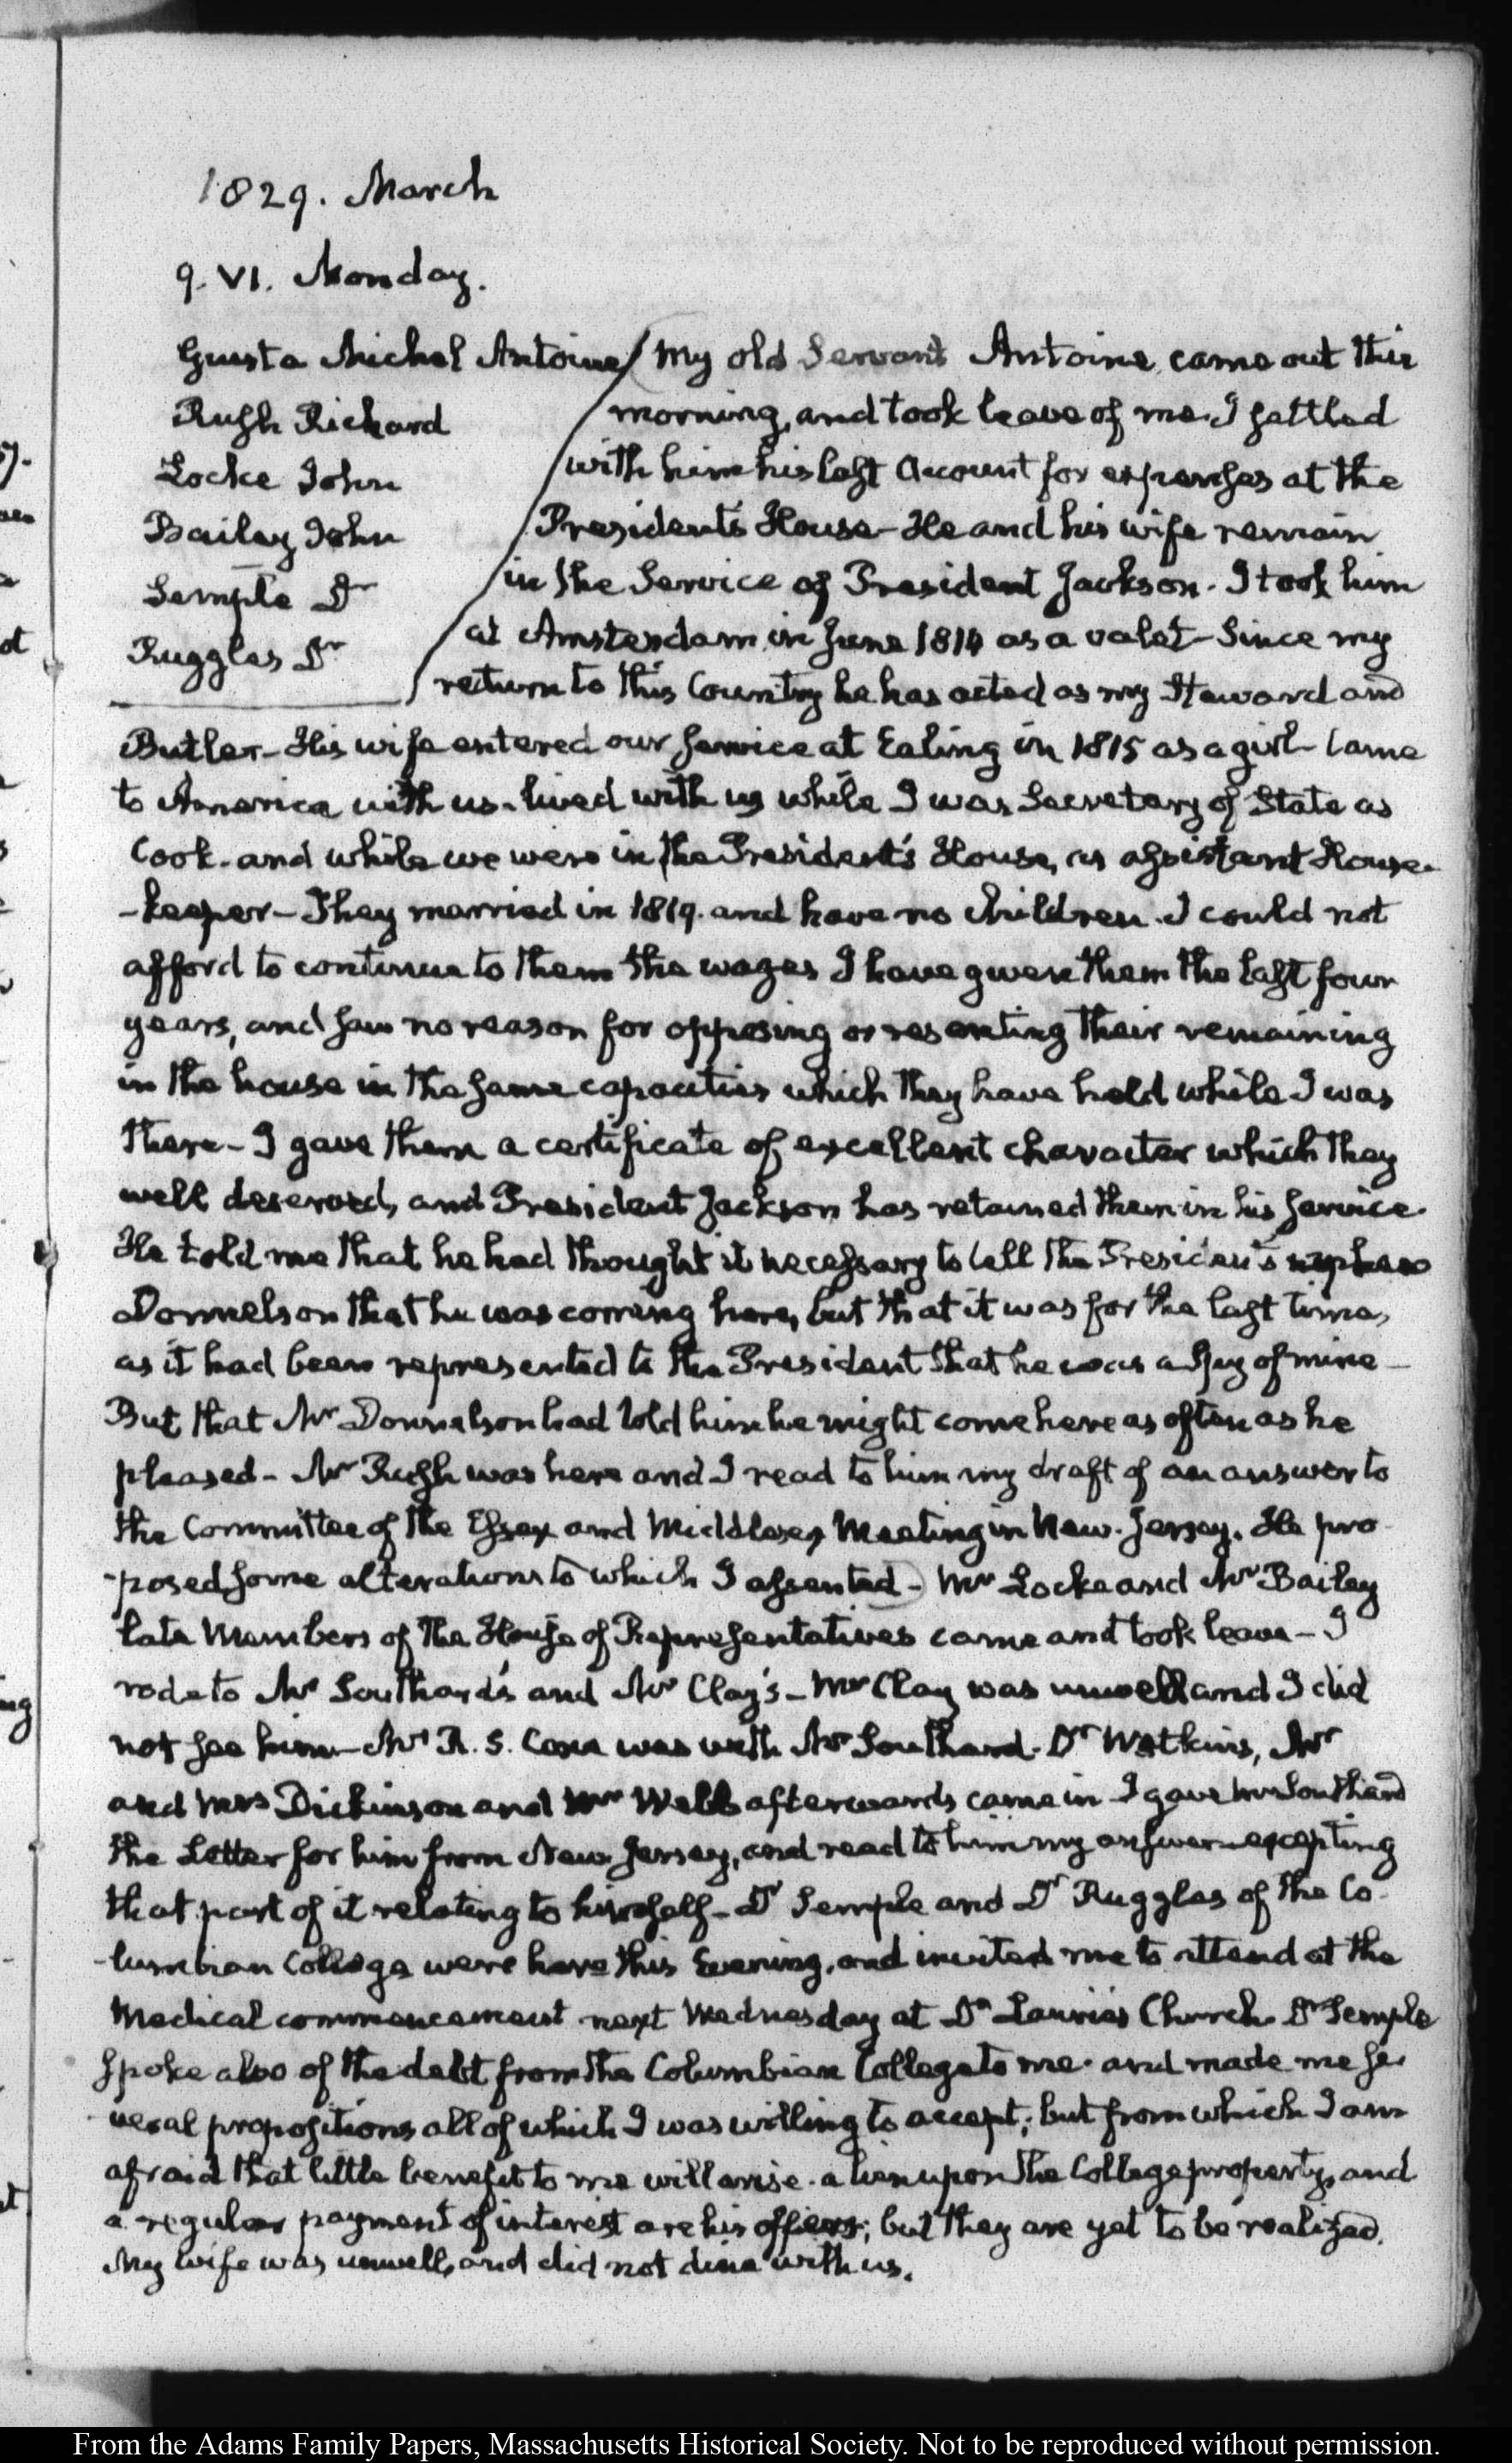 1829. March
9. VI. Monday.
Giusta Michel Antoine
Rush Richard
Locke John
Bailey John
Semple Dr
Ruggles Dr
My old Servant Antoine came out this
morning, and took leave of me. I settled
with him his last Account for expenses at the
President's House – He and his wife remain
in the Service of President Jackson. I took him
at Amsterdam in June 1814 as a valet – Since my
return to this Country he has acted as my Steward and
Butler – His wife entered our service at Ealing in 1815 as a girl – Came
to America with us – lived with us while I was Secretary of State as
Cook – and while we were in the President's House, as assistant House-
-keeper – They married in 1819. and have no children. I could not
afford to continue to them the wages I have given them the last four
years, and saw no reason for opposing or resenting their remaining
in the house in the same capacities which they have held while I was
there – I gave them a certificate of excellent character which they
well deserved, and President Jackson has retained them in his service.
He told me that he had thought it necessary to tell the President's nephew
Donnelson that he was coming here, but that it was for the last time,
as it had been represented to the President that he was a spy of mine –
But that Mr Donnelson had told him he might come here as often as he
pleased – Mr Rush was here and I read to him my draft of an answer to
the Committee of the Essex and Middlesex Meeting in New-Jersey. He pro-
-posed some alterations to which I assented – Mr Locke and Mr Bailey
late Members of the House of Representatives came and took leave – I
rode to Mr Southard's and Mr Clay's – Mr Clay was unwell and I did
not see him – Mr R. S. Coxe was with Mr Southard. Dr Watkins, Mr
and Mrs Dickinson and Mr Webb afterwards came in I gave Mr Southard
the Letter for him from New-Jersey, and read to him my answer – excepting
that part of it relating to himself – Dr Semple and Dr Ruggles of the Co-
-lumbian College were here this Evening, and invited me to attend at the
Medical commencement next Wednesday at Dr Laurie's Church. Dr Semple
spoke also of the debt from the Columbian College to me. and made me se-
veral propositions all of which I was willing to accept; but from which I am
afraid that little benefit to me will arise. a lien upon the College property, and
a regular payment of interest are his offers; but they are yet to be realized.
My wife was unwell, and did not dine with us.
From the Adams Family Papers, Massachusetts Historical Society. Not to be reproduced without permission.